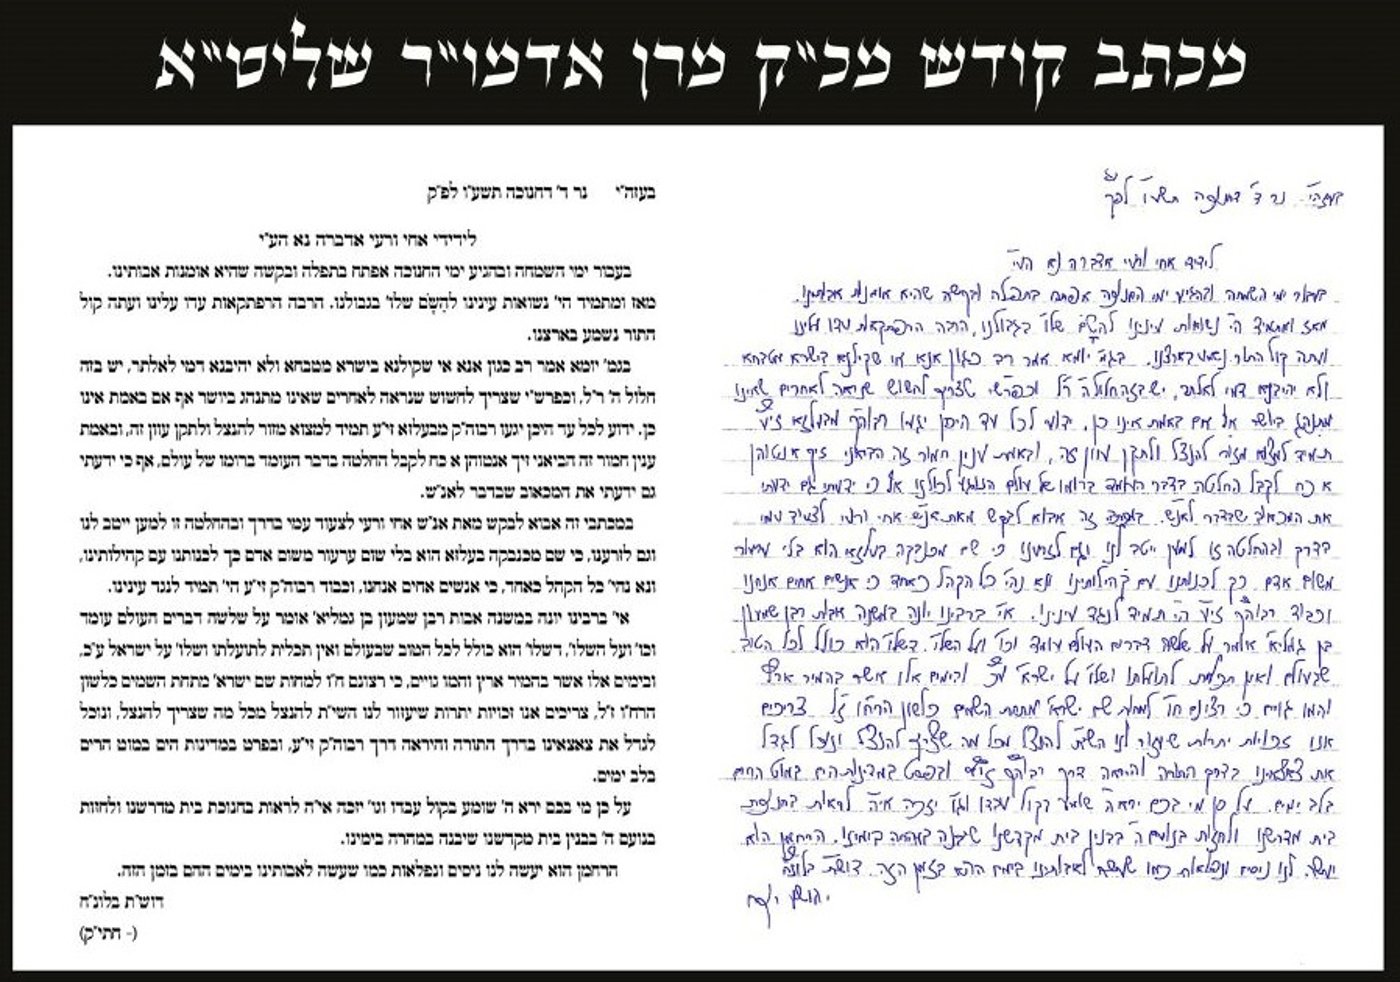 מכתב קודש מכ"ק מרן אדמו"ר שליט"א
בעזהי"י נר ד' דחנוכה תשע"ו לפ"ק
לידידי אחי ורעי אדברה נא הע"י
בעבור ימי השמחה ובהגיע ימי החנוכה אפתח בתפלה ובקשה שהיא אומנות אבותינו.
מאז ומתמיד הי' נשואות עינינו להַשָׂם שלו' בגבולנו, הרבה הרפתקאות עדו עלינו
ועתה קול התור נשמע בארצנו. בגמ' יומא אמר רב כגון אנא אי שקילנא בישרא מטבחא
ולא יהיבנא דמי לאלתר, יש בזה חלול ה' ר"ל וכפרש"י שצריך לחשוש שנראה לאחרים שאינו
מתנהג ביושר אף אם באמת אינו כן. ידוע לכל עד היכן יגעו רבוה"ק מבעלזא זי"ע
תמיד למצוא מזור להנצל ולתקן עוון זה, ובאמת ענין חמור זה הביאני זיך אנטוהן
א כח לקבל החלטה בדבר העומד ברומו של עולם לכולנו אף כי ידעתי גם ידעתי
את המכאוב שבדבר לאנ"ש. במכתבי זה אבוא לבקש מאת אנ"ש אחי ורעי לצעוד עמי
בדרך ובהחלטה זו למען ייטב לנו וגם לזרענו כי שם מכנבקה בעלזא הוא בלי ערעור
משום אדם כך לכנותנו עם קהילותינו ונא נהי' כל הקהל כאחד כי אנשים אחים אנחנו
וכבוד רבוה"ק זי"ע הי' תמיד לנגד עינינו. אי' ברבינו יונה במשנה אבות רבן שמעון
בן גמליא' אומר על שלשה דברים העולם עומד וכו' ועל השלו' דשלו' הוא כולל לכל הטוב
שבעולם ואין תכלית לתועלתו ושלו' על ישרא' ע"כ, ובימים אלו אשר בהמיר ארץ
והמו גוים כי רצונם ח"ו למחות שם ישרא' מתחת השמים כלשון הרח"ו ז"ל צריכים
אנו זכויות יתרות שיעזור לנו השי"ת להנצל מכל מה שצריך להנצל ונוכל לגדל
את צאצאינו בדרך התורה והיראה דרך רבוה"ק זי"ע ובפרט במדינות הים במוט הרים
בלב ימים. על כן מי בכם ירא ה' שומע בקול עבדו וגו' יזכה אי"ה לראות בחנוכת
בית מדרשנו ולחזות בנועם ה' בבנין בית מקדשנו שיבנה במהרה בימינו. הרחמן הוא
יעשה לנו ניסים ונפלאות כמו שעשה לאבותינו בימים ההם בזמן הזה. דוש"ת בלונ"ח
בעזהי"י נר ד' דחנוכה תשע"ו לפ"ק
לידידי אחי ורעי אדברה נא הע"י
בעבור ימי השמחה ובהגיע ימי החנוכה אפתח בתפלה ובקשה שהיא אומנות אבותינו.
מאז ומתמיד הי' נשואות עינינו להַשָׂם שלו' בגבולנו. הרבה הרפתקאות עדו עלינו ועתה קול
התור נשמע בארצנו.
בגמ' יומא אמר רב כגון אנא אי שקילנא בישרא מטבחא ולא יהיבנא דמי לאלתר, יש בזה
חלול ה' ר"ל, וכפרש"י שצריך לחשוש שנראה לאחרים שאינו מתנהג ביושר אף אם באמת אינו
כן. ידוע לכל עד היכן יגעו רבוה"ק מבעלזא זי"ע תמיד למצוא מזור להנצל ולתקן עוון זה, ובאמת
ענין חמור זה הביאני זיך אנטוהן א כח לקבל החלטה בדבר העומד ברומו של עולם, אף כי ידעתי
גם ידעתי את המכאוב שבדבר לאנ"ש.
במכתבי זה אבוא לבקש מאת אנ"ש אחי ורעי לצעוד עמי בדרך ובהחלטה זו למען ייטב לנו
וגם לזרענו, כי שם מכנבקה בעלזא הוא בלי שום ערעור משום אדם כך לכנותנו עם קהילותינו,
ונא נהי' כל הקהל כאחד, כי אנשים אחים אנחנו, וכבוד רבוה"ק זי"ע הי' תמיד לנגד עינינו.
אי' ברבינו יונה במשנה אבות רבן שמעון בן גמליא' אומר על שלשה דברים העולם עומד
וכו' ועל השלו', דשלו' הוא כולל לכל הטוב שבעולם ואין תכלית לתועלתו ושלו' על ישראל ע"כ,
ובימים אלו אשר בהמיר ארץ והמו גויים, כי רצונם ח"ו למחות שם ישרא' מתחת השמים כלשון
הרח"ו ז"ל, צריכים אנו זכויות יתרות שיעזור לנו השי"ת להנצל מכל מה שצריך להנצל, ונוכל
לגדל את צאצאינו בדרך התורה והיראה דרך רבוה"ק זי"ע, ובפרט במדינות הים במוט הרים
בלב ימים.
על כן מי בכם ירא ה' שומע בקול עבדו וגו' יזכה אי"ה לראות בחנוכת בית מדרשנו ולחזות
בנועם ה' בבנין בית מקדשנו שיבנה במהרה בימינו.
הרחמן הוא יעשה לנו ניסים ונפלאות כמו שעשה לאבותינו בימים ההם בזמן הזה.
דוש"ת בלונ"ח
(- חתי"ק)